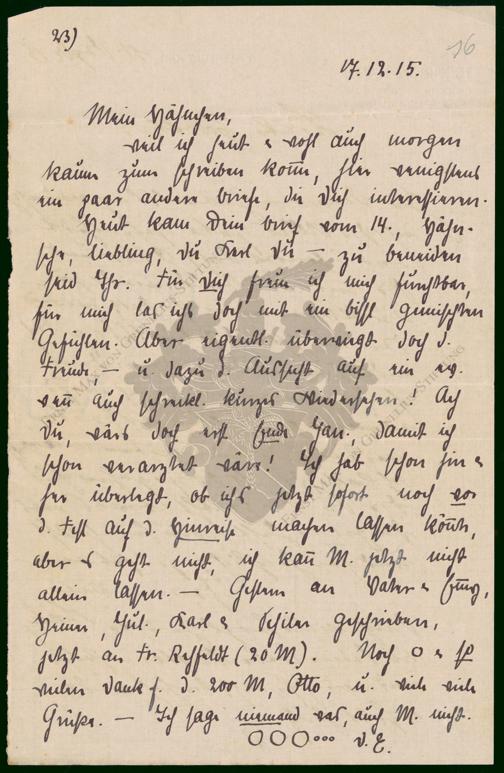 23)
16
17.12.15.
Mein Hähnchen,
weil ich heut u. wohl auch morgen
kaum zum schreiben kom̅, hier wenigstens
ein paar andere briefe, die Dich interessieren.
Heut kam Dein brief vom 14., Hähn-
sche, liebling, Du Karl Du — zu beneiden
seid Ihr. Für Dich freue ich mich furchtbar,
für mich las ichs doch mit ein bissl gemischten
Gefühlen. Aber eigentl. überwiegt doch d.
Freude, — u. dazu d. Aussicht auf ein ev.
wen̅ auch schreckl. kurzes Wiedersehen! Ach
Du, wärs doch erst Ende Jan., damit ich
schon verarztet wäre! Ich hab schon hin u.
her überlegt, ob ichs jetzt sofort noch vor
d. Fest auf d. Hinreise machen lassen kön̅te,
aber es geht nicht, ich kan̅ M. jetzt nicht
allein lassen. — Gestern an Vater u.
Heiner, Jul., Karl u. geschrieben,
jetzt an Fr. Rehfeldt (20 M). Noch
vielen Dank f. d. 200 M, Otto, u. viele viele
Grüsse. — Ich sage niemand was, auch M. nicht.
D. E.